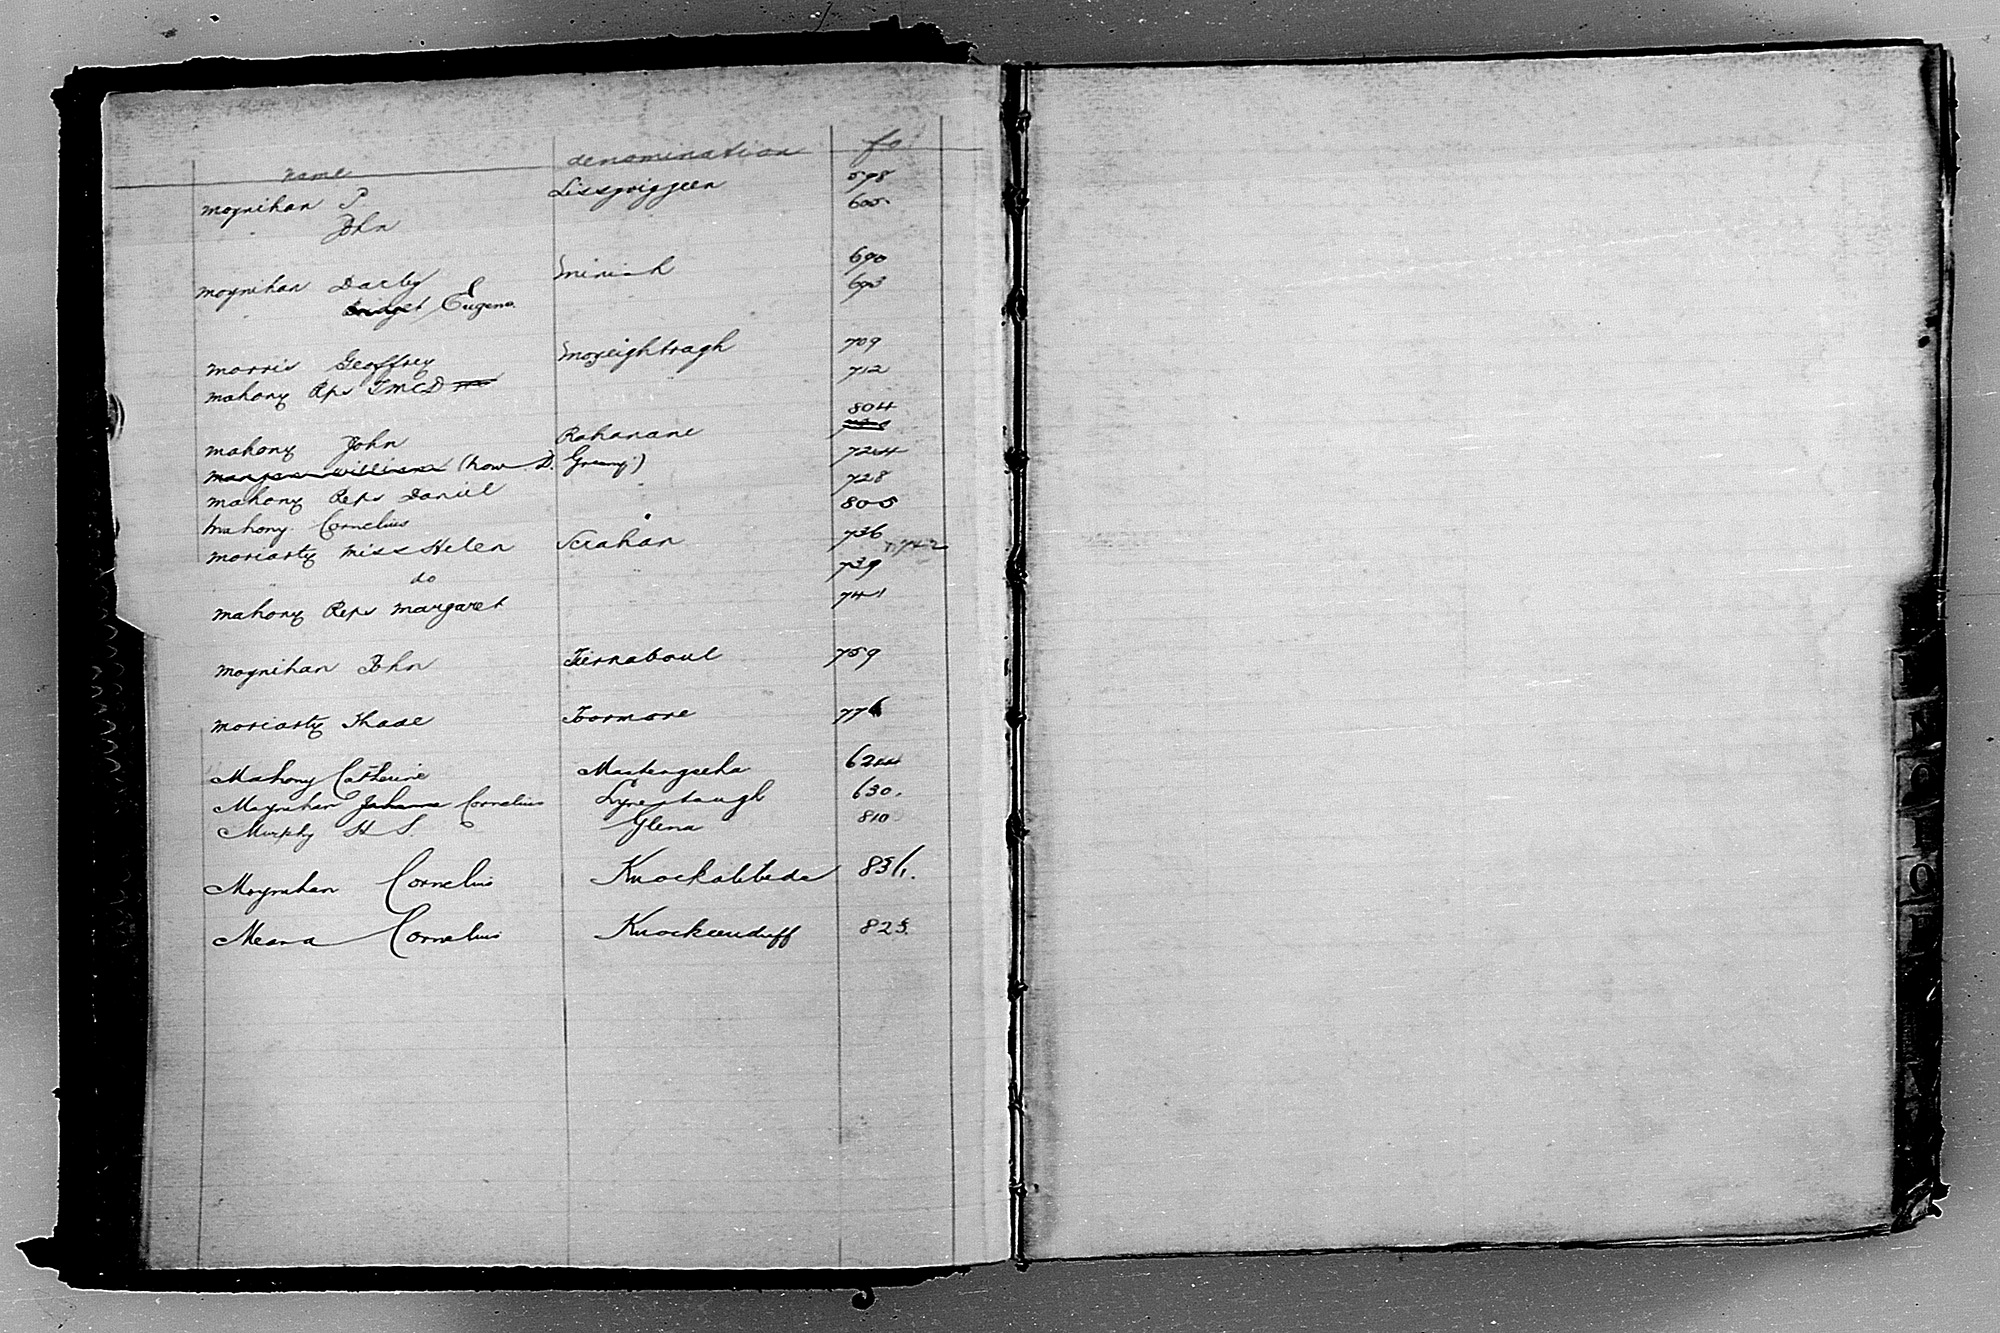 name denomination fo
Moynihan P Lissyviggeen 598
" John " 600
Moynihan Darby Minish 690
" Bridget Eugene " 693
Morris Geoffrey Moyeightragh 709
Mahony Reps T McD " 712
804
Mahony John Rahanane
Mangan William (now D. Greany) 724
Mahony Reps Daniel " 728
Mahony Cornelius 805
Moriarty Miss Helen Scrahan 736 & 742
" do " 739
Mahony Reps Margaret 741
Moynihan John Tiernaboul 759
Moriarty Thade Tormore 776
Mahony Catherine Mastergeeha 624
Moynihan Johanna Cornelius Lyrestaugh 630.
Murphy H S. Glena 810
Moynihan Cornelius 
Meara Cornelius Knockeenduff 825.